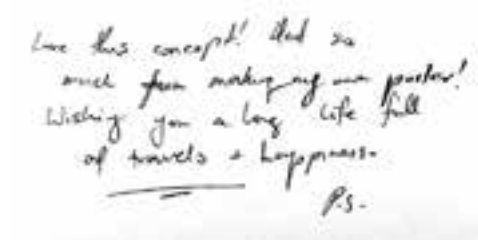 Love this concept! Had so
much fun making my own poster!
Wishing you a long life full
of travels + happiness.
P.S.